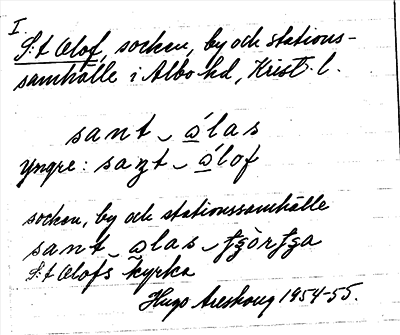 I.
S:t Olof, socken, by och stations-
samhälle i Albo hd, Krist. l.
sant ꞈ ólas
yngre: sant ꞈ ólof
socken, by och stationssamhälle
sant ꞈ olas ꞈ
S:t Olofs kyrka
Hugo Areskoug 1954-55.